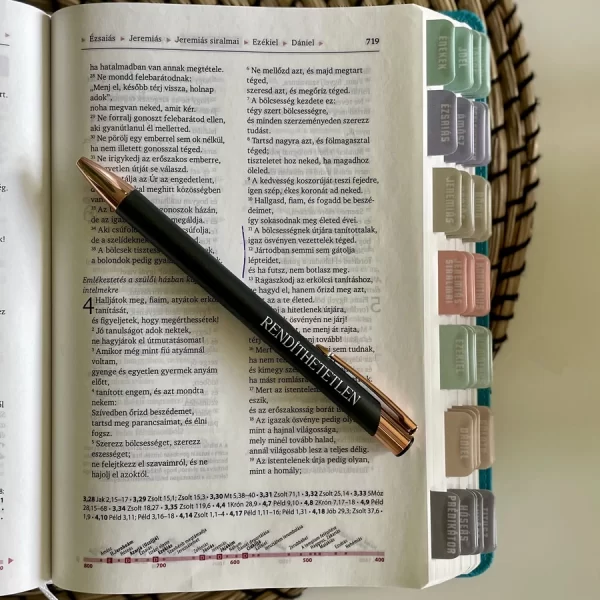 Ézsaiás ▸ Jeremiás ▸ Jeremiás siralmai ▸ Ezékiel ▸ Dániel ▸ 719
ha hatalmadban van annak megtétele.
28 Ne mondd felebarátodnak:
„Menj el, később térj vissza, holnap
adok”,
noha megvan neked, amit kér.
29 Ne forralj gonoszt felebarátod ellen,
aki gyanútlanul él melletted.
30 Ne pörölj egy emberrel sem ok nélkül,
ha nem illetett gonosszal téged.
31 Ne irigykedj az erőszakos emberre,
egyetlen útját se válaszd.
álja az Úr az engedetlent,
akkal meghitt közösségben
van.
33 Az Ú gonoszok házán,
de az iga megáldja.
34 Aki csúfo súfolja,
de a szelídeknek
35 A bölcsek tiszte
a bolondok pedig gyalá
Emlékeztetés a szülői házban
intelmekre
4 Halljátok meg, fiaim, atyátok
tanítását,
és figyeljetek, hogy megérthessétek!
2 Jó tanulságot adok nektek,
ne hagyjátok el útmutatásomat!
3 Amikor még mint fiú atyámnál
voltam,
gyenge és egyetlen gyermek anyám
előtt,
4 tanított engem, és azt mondta
nekem:
Szívedben őrizd beszédemet,
tartsd meg parancsaimat, és élni
fogsz.
5 Szerezz bölcsességet, szerezz
eszességet;
ne felejtkezz el szavaimról, és ne
hajolj el azoktól.
6 Ne mellőzd azt, és majd megtart
téged,
szeresd azt, és megőriz téged.
7 A bölcsesség kezdete ez:
tégy szert bölcsességre,
és minden szerzeményeden szerezz
tudást.
8 Tartsd nagyra azt, és fölmagasztal
téged;
tiszteletet hoz neked, ha magadhoz
öleled.
9 A kedvesség koszorúját teszi fejedre,
igen szép, ékes koronát ad neked.
10 Hallgasd, fiam, és fogadd be beszé-
deimet,
így sokasodnak meg életed évei.
11 A bölcsességnek útjára tanítottalak,
igaz ösvényen vezettelek téged.
12 Jártodban semmi sem gátolja
lépteidet,
és ha futsz, nem botlasz meg.
13 Ragaszkodj az erkölcsi tanításhoz,
ne hagyd el, hanem őrizd meg azt,
az a te életed.
a hitetlenek útjára,
ösvényén ne járj!
t, ne menj át rajta,
nj tovább!
16 Mert a sem tudnak,
ha nem tes
és kimegy sz
ha mást romlásr
17 Mert az istentelens
eszik,
és az erőszakosság borát i
18 Az igazak ösvénye pedig oly
mint a hajnal világossága,
mely minél tovább halad,
annál világosabb lesz a teljes délig.
19 Az istentelenek útja pedig olyan,
mint a homály;
RENDÍTHETETLEN
5
3,28 Jak 2,15–17 • 3,29 Zsolt 15,1; Zsolt 15,3 • 3,30 Mt 5,38–40 • 3,31 Zsolt 71,1 • 3,32 Zsolt 25,14 • 3,33 5Móz
28,15–68 • 3,34 Zsolt 18,27 • 3,35 Zsolt 119,6 • 4,4 1Krón 28,9 • 4,7 Péld 9,10 • 4,8 2Krón 7,17–18 • 4,9 Péld
1,9 • 4,10 Péld 3,11; Péld 3,16–18 • 4,14 Zsolt 1,1–4 • 4,17 Péld 1,11–16; Péld 1,31 • 4,18 Job 29,3; Péld 37,6
800 700 600 500 400
ÉNEKEK
JÓEL
ÉZSAIÁS
ÁMÓSZ
JEREMIÁS
JEREMIÁS SIRALMAI
EZÉKIEL
DÁNIEL
HÓSEÁS
PRÉDIKÁTOR